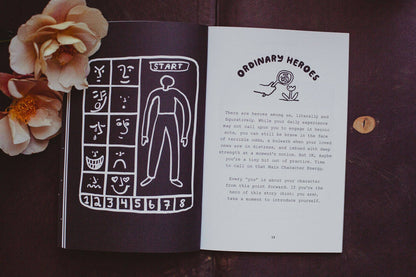 START
1 2 3 4 5 6 7 8
ORDINARY HEROES
There are heroes among us, literally and
figuratively. While your daily experience
may not call upon you to engage in heroic
acts, you can still be brave in the face
of terrible odds, a bulwark when your loved
ones are in distress, and imbued with deep
strength at a moment's notice. But OK, maybe
you're a tiny bit out of practice. Time
to call on that Main Character Energy.
Every "you" is about your character
from this point forward. If you're the
hero of this story (hint: you are),
take a moment to introduce yourself.